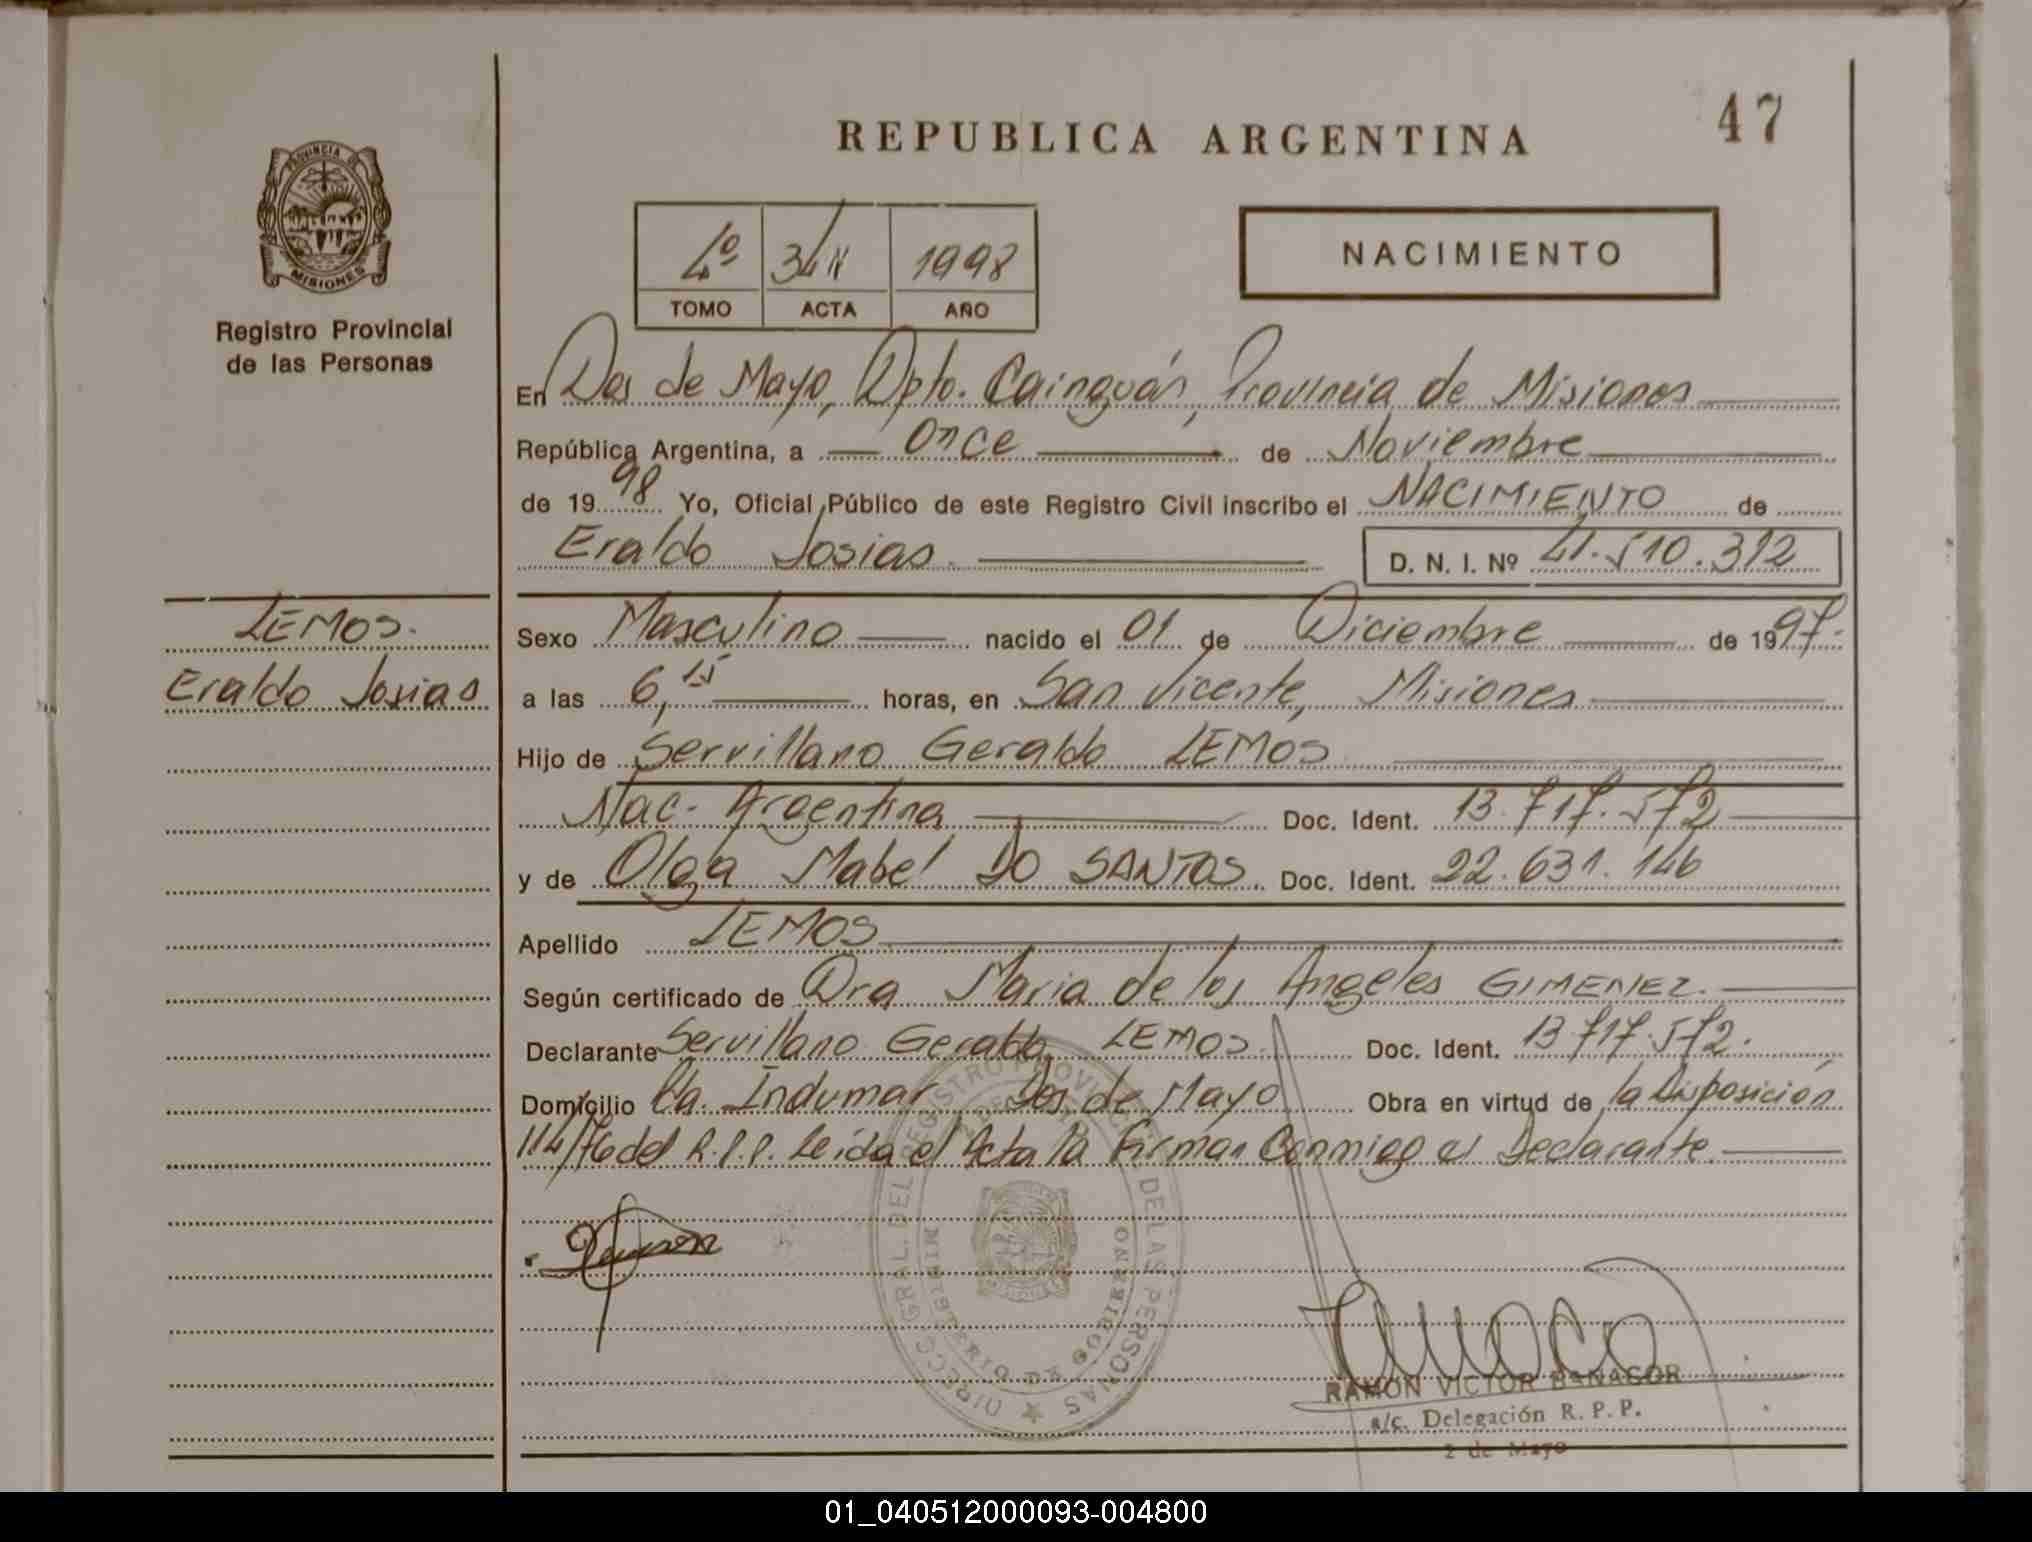 47
REPUBLICA ARGENTINA
PROVINCIA DE
MISIONES
Registro Provincial
de las Personas
4º 1998
TOMO ACTA AÑO
NACIMIENTO
En Dos de Mayo, Dpto. Cainguás, Provincia de Misiones
República Argentina, a Once de Noviembre
de 1998 Yo, Oficial Público de este Registro Civil inscribo el NACIMIENTO de
Eraldo Josias D. N. I. Nº 41.510.312
LEMOS.
Eraldo Josias
Sexo Masculino nacido el 01 de Diciembre de 1997.
a las 6,15 horas, en San Vicente, Misiones
Hijo de Servillano Geraldo LEMOS
Nac. Argentina Doc. Ident. 13.717.572
y de Olga Mabel DO SANTOS. Doc. Ident. 22.631.146
Apellido LEMOS
Según certificado de Dra Maria de los Angeles GIMENEZ.
Declarante Servillano Geraldo LEMOS. Doc. Ident. 13.717.572.
Domicilio Cía. Indumar, Dos de Mayo Obra en virtud de la Disposición
114/76 del R.P.P. Leída el Acta la Firman Conmigo el Declarante.
DIRECC. GRAL. DEL REGISTRO PROVINCIAL DE LAS PERSONAS
MINISTERIO DE GOBIERNO
RAMON VICTOR
a/c. Delegación R. P. P.
2 de Mayo
01_040512000093-004800